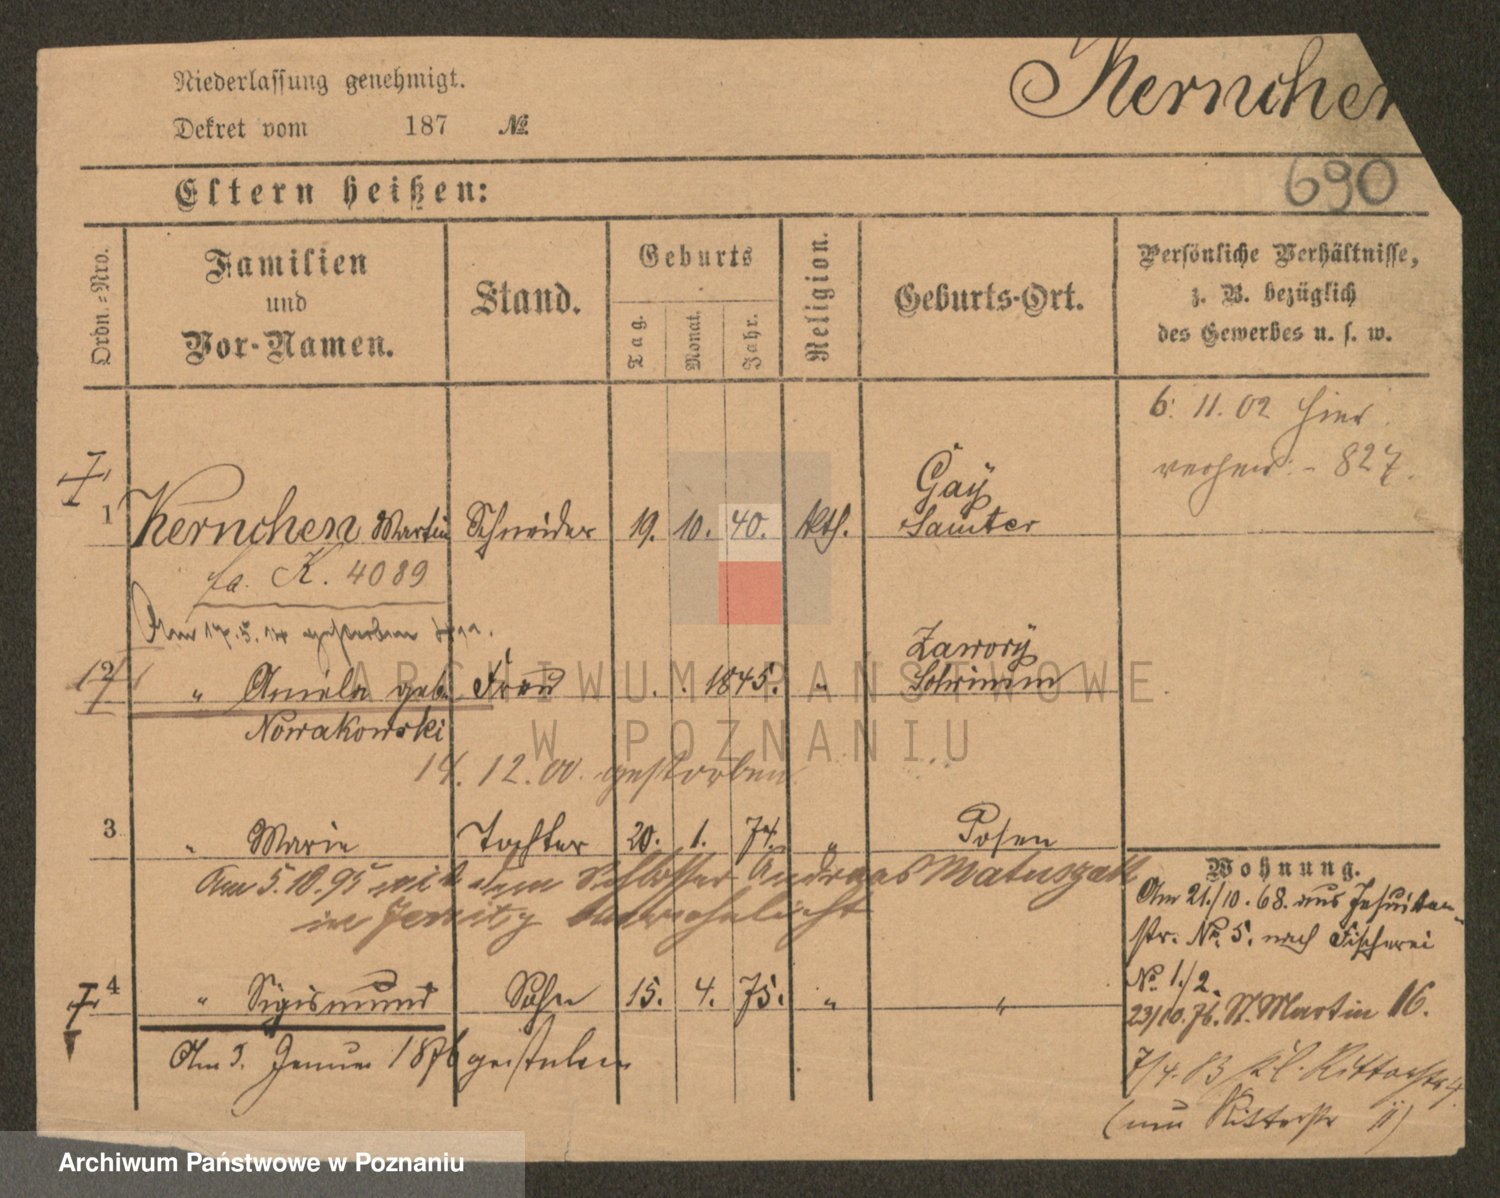 Niederlassung genehmigt.
Dekret vom 187 No.
Kernchen
690
Eltern heißen:
Ordn.-Nro.
Familien
und
Vor-Namen.
Stand.
Geburts
Tag.
Monat.
Jahr.
Religion.
Geburts-Ort.
Persönliche Verhältnisse,
z. B. bezüglich
des Gewerbes u. s. w.
6. 11. 02 hier
827.
1 Kernchen Martin Schneider 19. 10. 40. kth. Gay Samter
K. 4089
Am gestorben
2 " Amela geb. Frau 1845. " Zawory Schrimm
Nowakowski
14. 12. 00. gestorben
3 " Marie Tochter 20. 1. 74. " Posen
Am 5.10.95 mit dem Schlosser Andreas Matuszak
in Jersitz verehelicht
4 " Sigismund Sohn 15. 4. 75. " "
Am 3. Januar 1876 gestorben
Wohnung.
Am 21/10. 68. aus Jesuiten-
str. No. 5. nach Fischerei
No 1./2.
23/10. 76. St. Martin 16.
7/4. 83 Kl. Ritterstr 4.
(nun Ritterstr 11)
ARCHIWUM PAŃSTWOWE
W POZNANIU
Archiwum Państwowe w Poznaniu